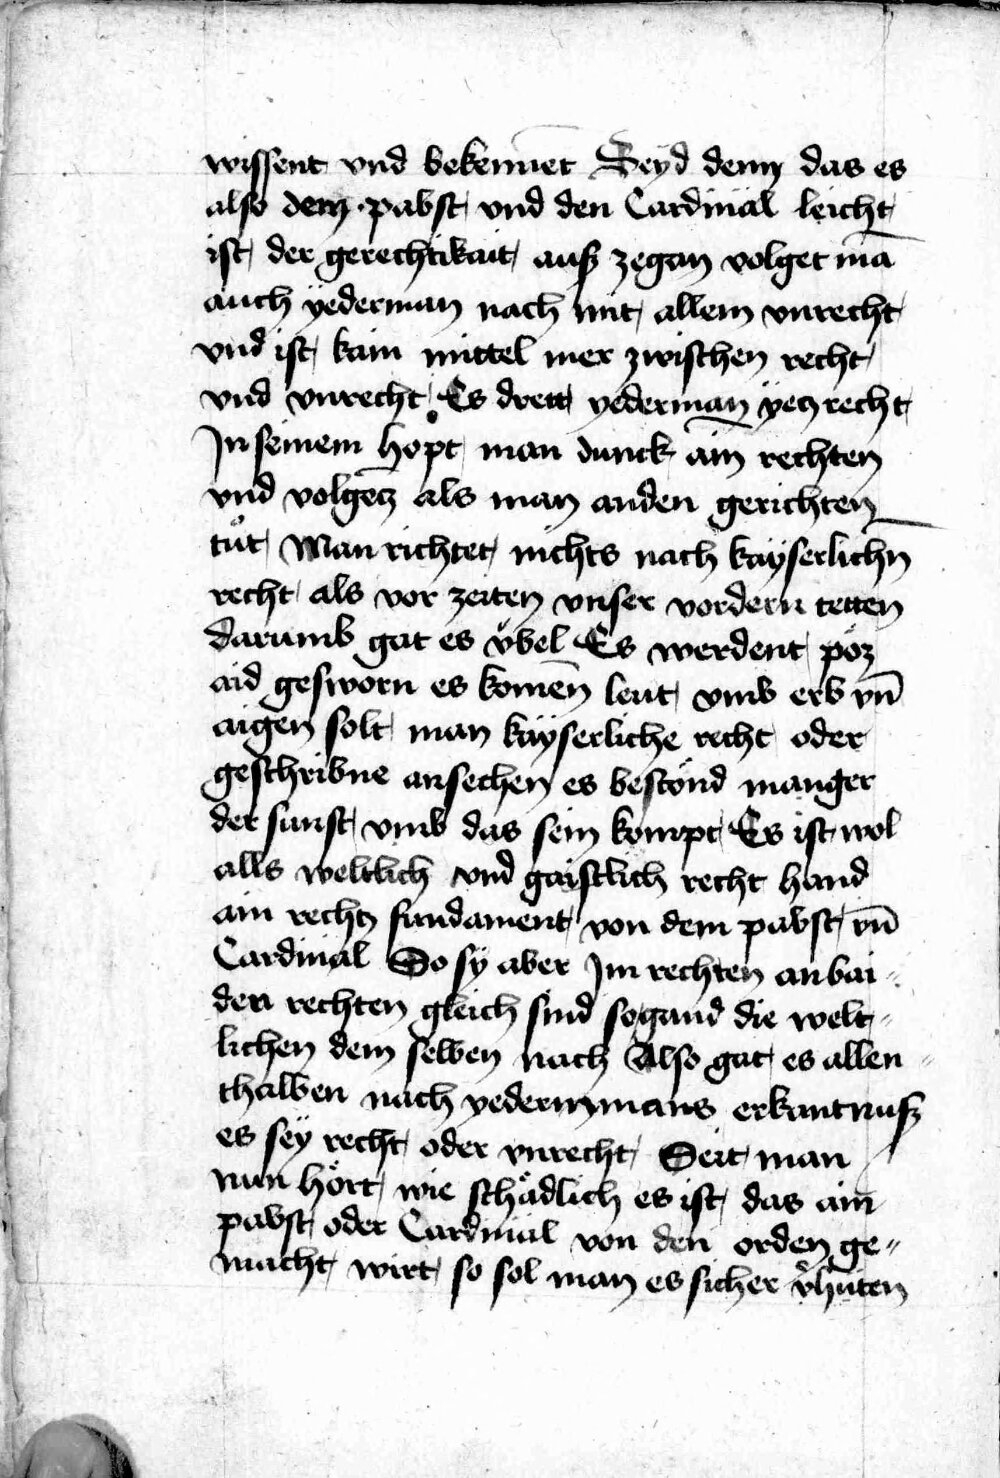 wissent vnd bekennet Seyd denn das es
also dem pabst vnd den Cardinäl leicht
ist der gerechtikait auß zegan volget mā
auch yederman nach mit allem vnrecht
vnd ist kain mittel mer zwischen recht
vnd vnrecht Es drett yederman yetz recht
In seinem hopt man dunck ain rechten
vnd volgetz als man anden gerichten
tůt Man richtet nichts nach kayserlichn
recht als vor zeiten vnser vordern tetten
darumb gat es v̈bel Es werdent pöz
aid gesworn es komēn leut vmb erb vn̄
aigen solt man kayserliche recht oder
geschribne ansechen es bestönd manger
der sunst vmb das sein kompt Es ist wol
alls weltlich vnd gaistlich recht hand
ain rechtz fundament von dem pabst vn̄
Cardinäl So sy aber Im rechten an bai=
den rechten gleich sind so gand die welt=
lichen dem selben nach Also gat es allen=
thalben nach yedermmans erkantnuß
es sey recht oder vnrecht Seit man
nun hört wie schädlich es ist das ain
pabst oder Cardinäl von den orden ge=
macht wirt so sol man es sicher v̓hüten